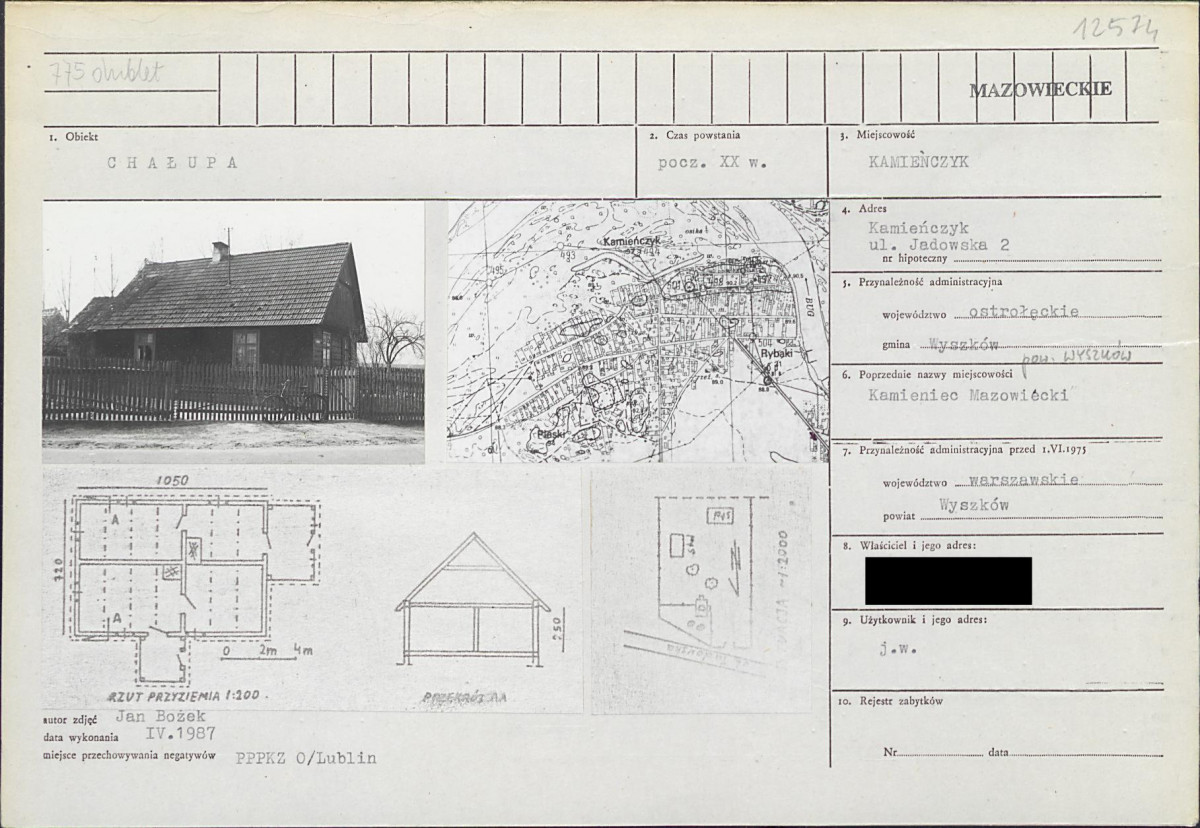 12574
775 dublet
MAZOWIECKIE
1. Obiekt
CHAŁUPA
2. Czas powstania
pocz. XX w.
3. Miejscowość
KAMIEŃCZYK
4. Adres
Kamieńczyk
ul. Jadowska 2
nr hipoteczny
5. Przynależność administracyjna
województwo ostrołęckie
gmina Wyszków
pow. WYSZKÓW
6. Poprzednie nazwy miejscowości
Kamieniec Mazowiecki
7. Przynależność administracyjna przed 1.VI.1975
województwo warszawskie
powiat Wyszków
8. Właściciel i jego adres:
9. Użytkownik i jego adres:
j.w.
10. Rejestr zabytków
Nr data
Kamieńczyk
493
494
495
BUG
Rybaki
Piaski
1050
720
A
A
0 2m 4m
RZUT PRZYZIEMIA 1:200.
250
PRZEKRÓJ AA
1:2000
autor zdjęć Jan Bożek
data wykonania IV.1987
miejsce przechowywania negatywów PPPKZ O/Lublin